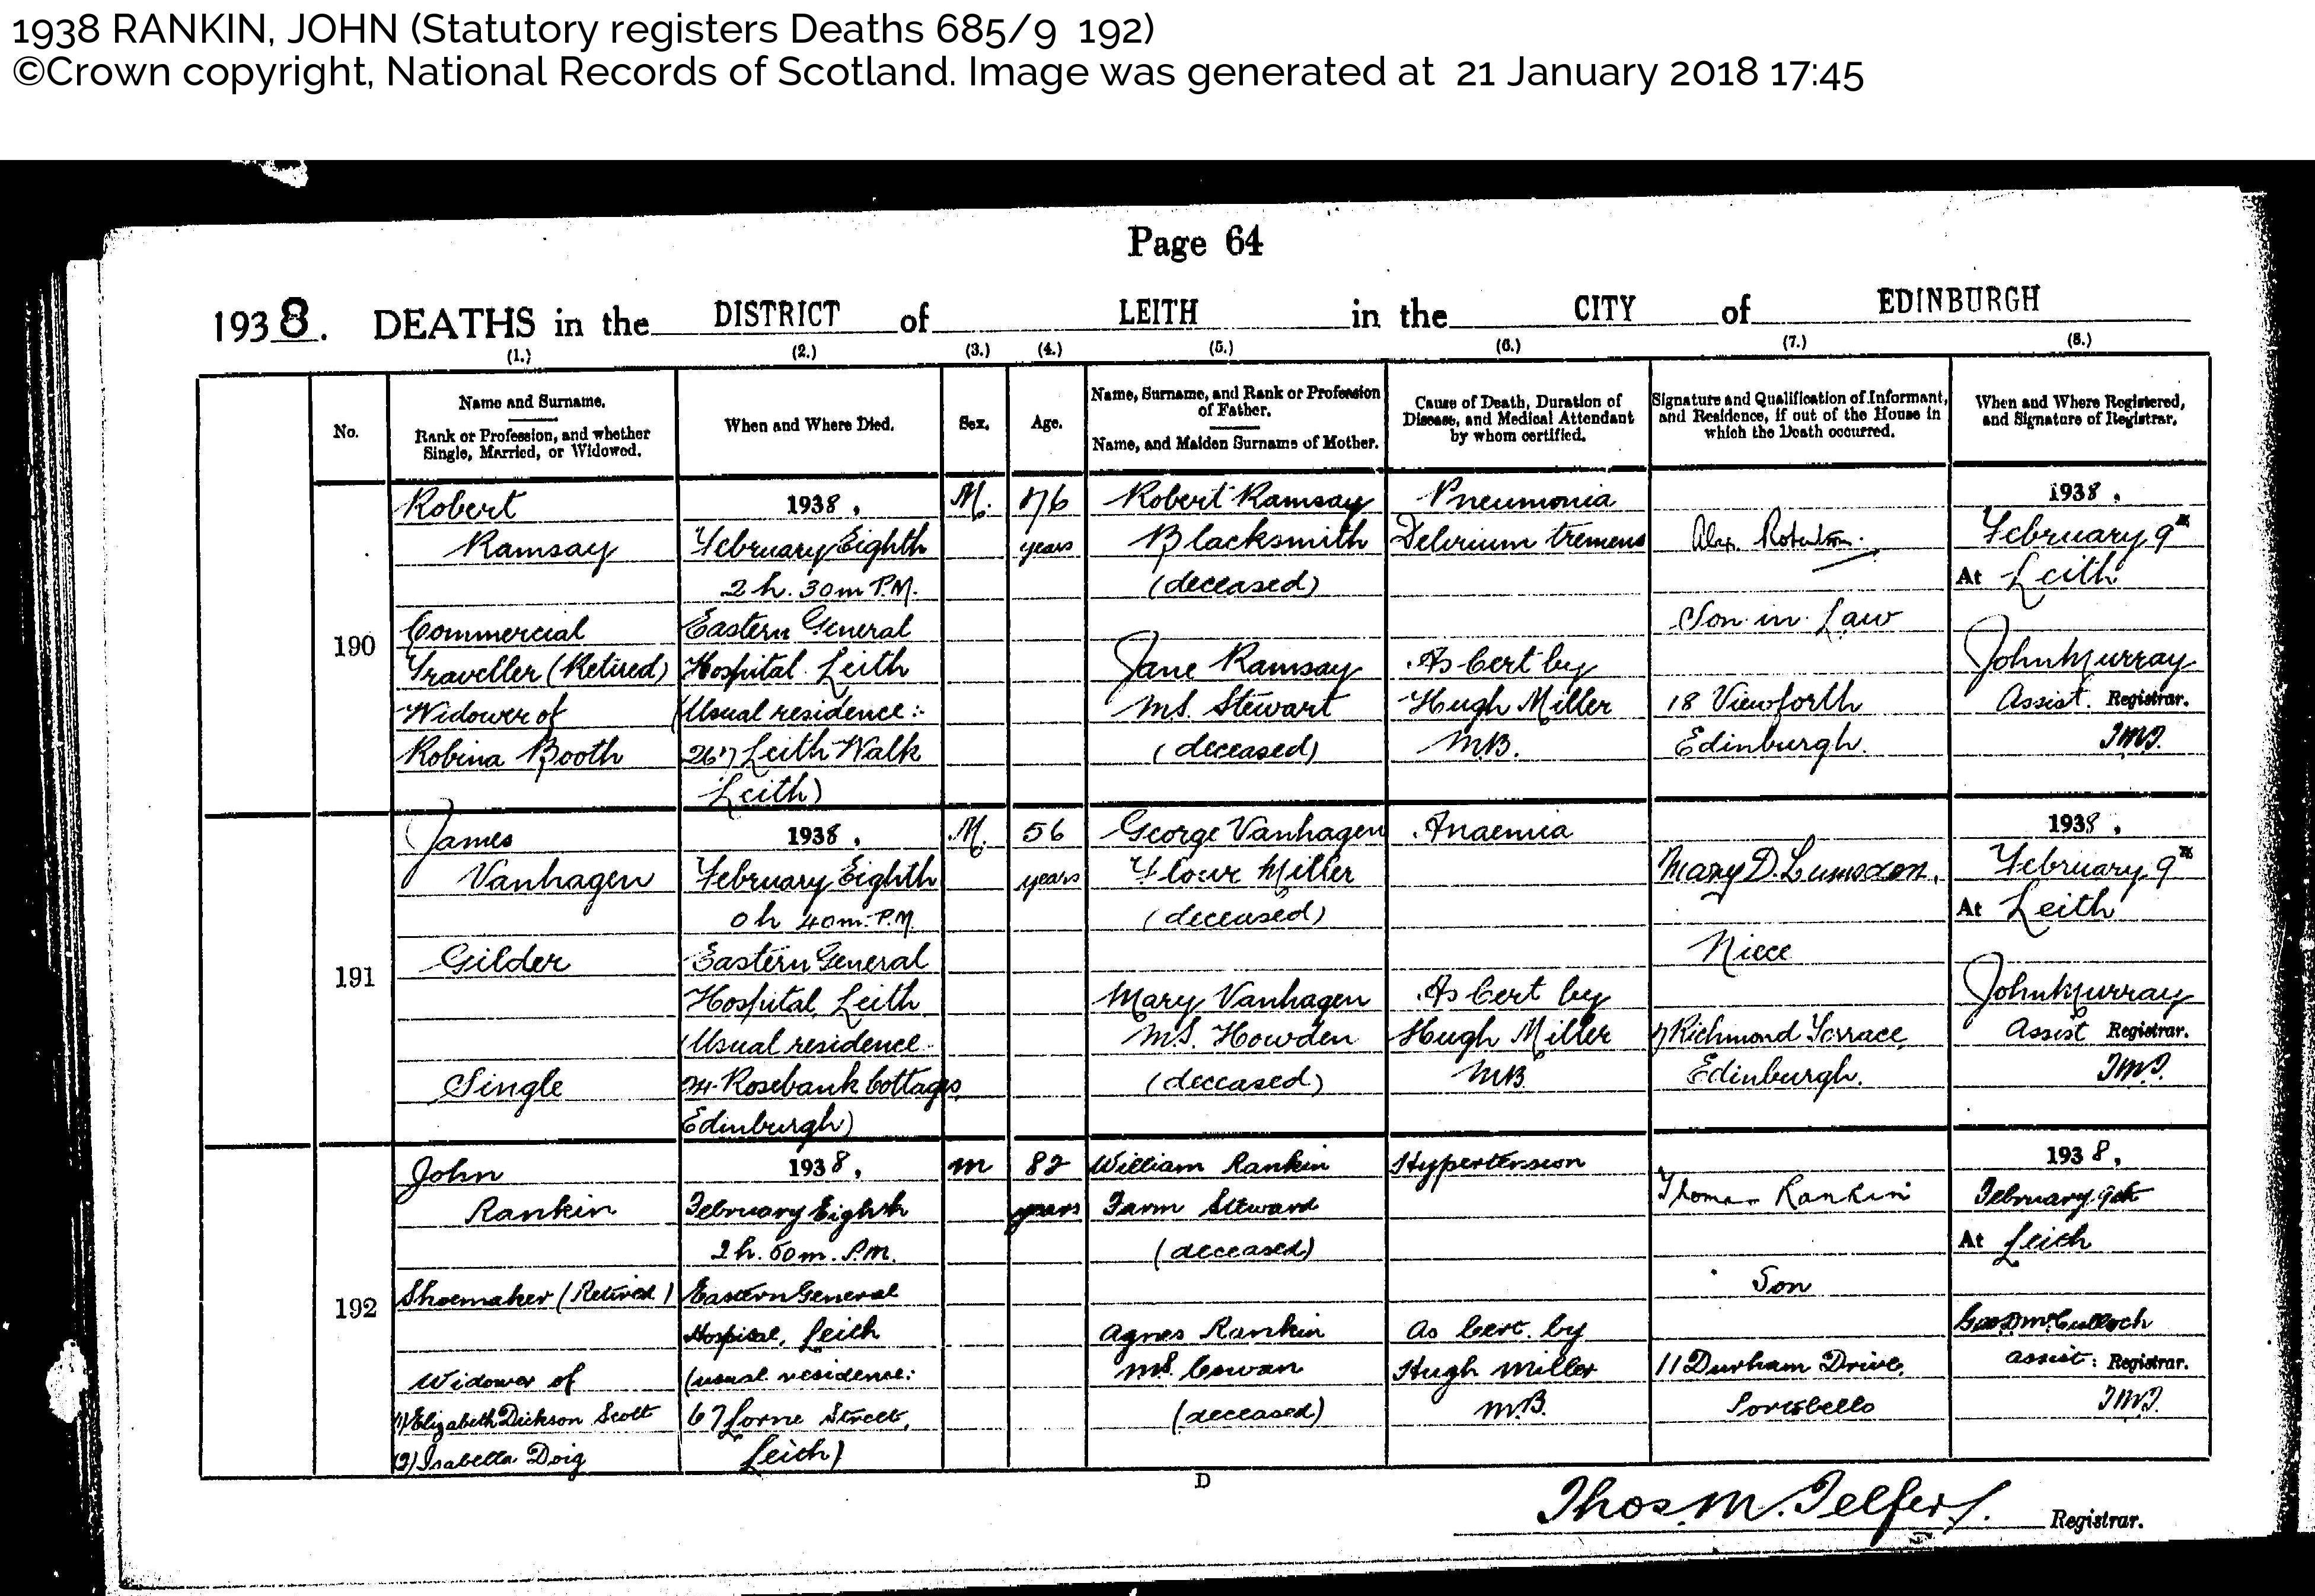 1938 RANKIN, JOHN (Statutory registers Deaths 685/9 192)
©Crown copyright, National Records of Scotland. Image was generated at 21 January 2018 17:45
Page 64
1938. DEATHS in the DISTRICT of LEITH in the CITY of EDINBURGH
(1.) (2.) (3.) (4.) (5.) (6.) (7.) (8.)
No.
Name and Surname.
Rank or Profession, and whether
Single, Married, or Widowed.
When and Where Died.
Sex.
Age.
Name, Surname, and Rank or Profession
of Father.
Name, and Maiden Surname of Mother.
Cause of Death, Duration of
Disease, and Medical Attendant
by whom certified.
Signature and Qualification of Informant,
and Residence, if out of the House in
which the Death occurred.
When and Where Registered,
and Signature of Registrar.
190
Robert
Ramsay
Commercial
Traveller (Retired)
Widower of
Robina Booth
1938,
February Eighth
2 h. 30 m P.M.
Eastern General
Hospital Leith
(Usual residence:-
267 Leith Walk
Leith)
M.
76
years
Robert Ramsay
Blacksmith
(deceased)
Jane Ramsay
MS. Stewart
(deceased)
Pneumonia
Delirium tremens
As Cert by
Hugh Miller
M.B.
Alex. Robertson.
Son in Law
18 Viewforth
Edinburgh.
1938,
February 9th
At Leith
John Murray
Assist. Registrar.
T.M.T.
191
James
Vanhagen
Gilder
Single
1938,
February Eighth
0 h 40 m. P.M.
Eastern General
Hospital, Leith
(Usual residence
24 Rosebank Cottages
Edinburgh)
M.
56
years
George Vanhagen
Flour Miller
(deceased)
Mary Vanhagen
MS. Howden
(deceased)
Anaemia
As Cert by
Hugh Miller
MB
Mary D. Lumsden.
Niece
7 Richmond Terrace,
Edinburgh.
1938,
February 9th
At Leith
John Murray
Assist Registrar.
T.M.T.
192
John
Rankin
Shoemaker (Retired)
Widower of
(1) Elizabeth Dickson Scott
(2) Isabella Doig
1938,
February Eighth
2 h. 50 m. P.M.
Eastern General
Hospital, Leith
(usual residence:
67 Lorne Street,
Leith)
M
82
years
William Rankin
Farm Steward
(deceased)
Agnes Rankin
MS. Cowan
(deceased)
Hypertension
As Cert. by
Hugh Miller
M.B.
Thomas Rankin
Son
11 Durham Drive,
Portobello
1938,
February 9th
At Leith
Geo. D. McCulloch
Assist: Registrar.
T.M.T.
D
Thos. M. Telfer Registrar.